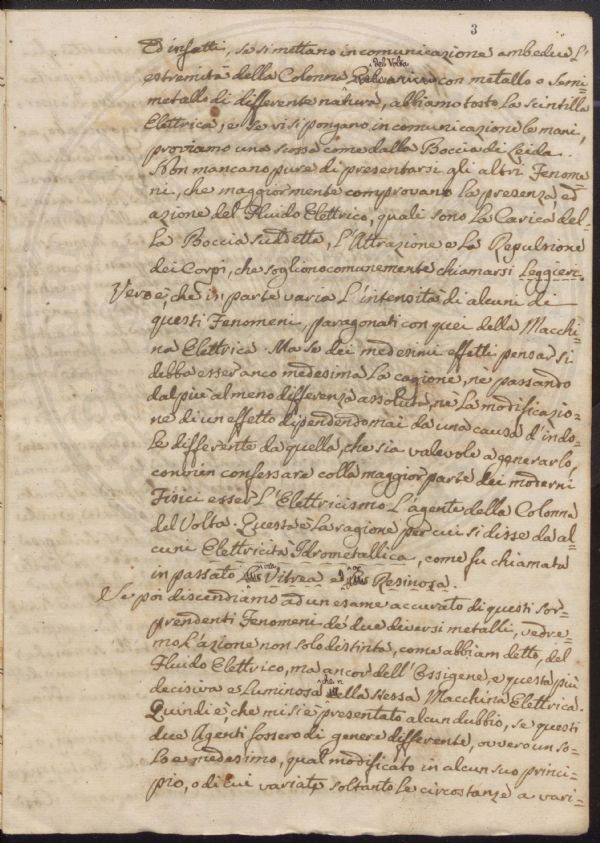 3
Ed infatti, se si mettano in comunicazione ambedue l'
estremità della Colonna del Volta con metallo o Semi=
metallo di differente natura, abbiamo tosto la scintilla
Elettrica, e se vi si pongano in comunicazione le mani,
proviamo una scossa come dalla Boccia di Leida.
Non mancano pure di presentarsi gli altri Fenome=
ni, che maggiormente comprovano la presenza ed
azione del Fluido Elettrico, quali sono la Carica del=
la Boccia suddetta, l'Attrazione e la Repulsione
dei Corpi, che sogliono comunemente chiamarsi Leggieri.
Vero è, che in parte varia l'intensità di alcuni di
questi Fenomeni, paragonati con quei della Macchi=
na Elettrica. Ma se dei medesimi effetti pensar si
debba esser anco medesima la cagione, nè passando
dal più al meno differenza assoluta, nè la modificazio=
ne di un effetto dipendendo mai da una causa d'indo=
le differente da quella, che sia valevole a generarlo,
convien confessare colla maggior parte dei moderni
Fisici esser l'Elettricismo l'agente della Colonna
del Volta. Questa è la ragione per cui si disse da al=
cuni Elettricità Idrometallica, come fu chiamata
in passato Vitrea e Resinosa.
Se poi discendiamo ad un esame accurato di questi sor=
prendenti Fenomeni de' due diversi metalli, vedre=
mo l'azione non solo distinta, come abbiam detto, del
Fluido Elettrico, ma ancor dell'Ossigene, e questa più
decisiva e luminosa che nella stessa Macchina Elettrica.
Quindi è, che mi si è presentato alcun dubbio, se questi
due Agenti fossero di genere differente, ovvero un so=
lo e medesimo, qual modificato in alcun suo princi=
pio, o di cui variate soltanto le circostanze a vari=